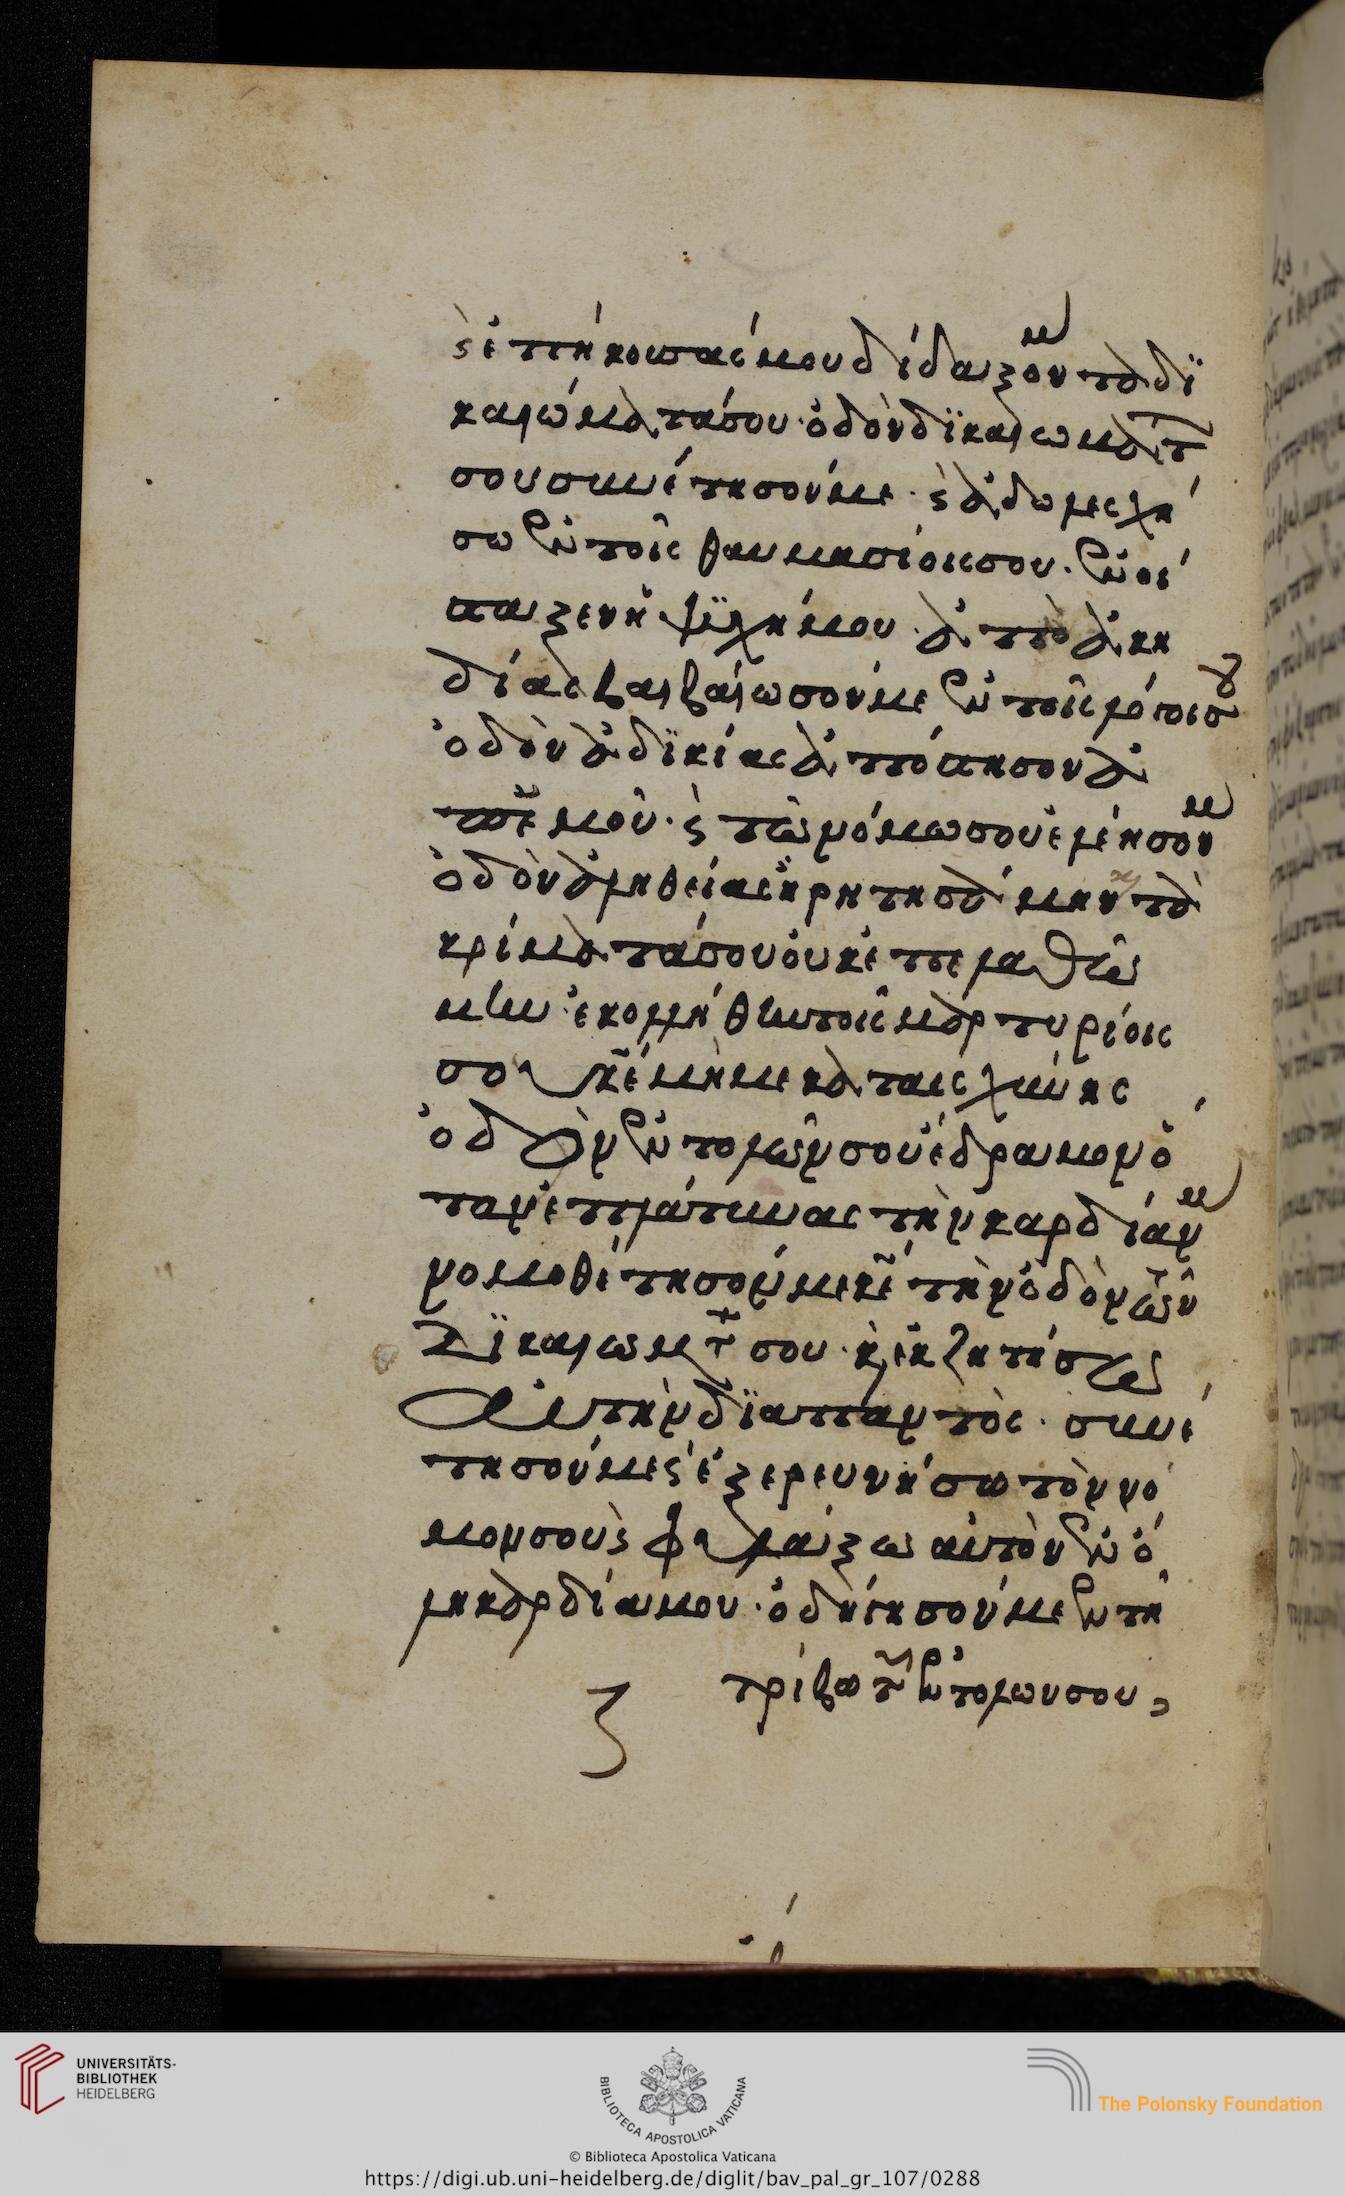 ϛ ἐπήκουσάς μου δίδαξόν μ τὰ δϊ
καιώματά σου· ὁδὸν δϊκαιωμάτ
σου συνέτησόν με· ϛ ἀδωλεσχή
σω ἐν τοῖς θαυμασίοις σου· ἐνοί
σταξεν ἡ ψϋχή μου ἀπὸ ἀκη
δίας βαιβαίωσόν με ἐν τοῖς λόγοις σου
ὁδὸν ἀδϊκίας ἀπόστησον ἀ
π ἐμοῦ· ϛ τῶ νόμω σου ἐλέησόν μ
ὁδὸν ἀληθείας ἡρητησάμην κ τὰ
κρίματά σου οὐκ ἐπελαθό
μην· ἐκολλήθην τοῖς μαρτυρίοις
σου κε μή με καταισχύνης
ὁδὸν ἐντολῶν σου ἔδραμον ὅ
ταν ἐπλάτυνας τὴν καρδίαν μ
νομοθέτησόν με κε τὴν ὁδὸν τῶν
δϊκαιωμτ σου· κ ἐκζητήσω
αὐτὴν δϊαπαντὸς· συνέ
τησόν με ϛ ἐξερευνήσω τὸν νό
μον σου ϛ φυλάξω αὐτὸν ἐν ὅ
λη καρδία μου· ὁδήγησόν με ἐν τῆ
τρίβω τῶν ἐντολων σου,
UNIVERSITÄTS-
BIBLIOTHEK
HEIDELBERG
BIBLIOTECA APOSTOLICA VATICANA
The Polonsky Foundation
© Biblioteca Apostolica Vaticana
https://digi.ub.uni-heidelberg.de/diglit/bav_pal_gr_107/0288